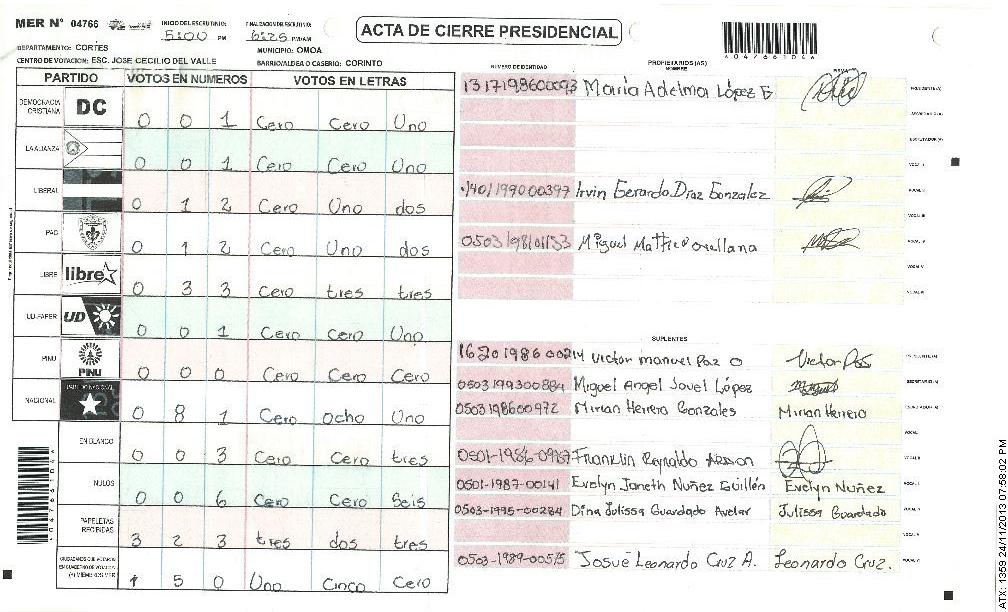 MER N° 04766
INICIO DEL ESCRUTINIO: 5:00 PM
FINALIZACION DEL ESCRUTINIO: 6:25 PM/AM
ACTA DE CIERRE PRESIDENCIAL
DEPARTAMENTO: CORTES
MUNICIPIO: OMOA
CENTRO DE VOTACION: ESC. JOSE CECILIO DEL VALLE
BARRIO/ALDEA O CASERIO: CORINTO
PARTIDO VOTOS EN NUMEROS VOTOS EN LETRAS
DEMOCRACIA CRISTIANA DC 0 0 1 Cero Cero Uno
LA ALIANZA 0 0 1 Cero Cero Uno
LIBERAL 0 1 2 Cero Uno dos
PAC 0 1 2 Cero Uno dos
LIBRE libre 0 3 3 Cero tres tres
UD-FAPER UD 0 0 1 Cero Cero Uno
PINU PINU 0 0 0 Cero Cero Cero
NACIONAL PARTIDO NACIONAL 0 8 1 Cero ocho Uno
EN BLANCO 0 0 3 Cero Cero tres
NULOS 0 0 6 Cero Cero Seis
PAPELETAS RECIBIDAS 3 2 3 tres dos tres
CIUDADANOS QUE VOTARON EN CUADERNO DE VOTACION (+) MIEMBROS MER 1 5 0 Uno Cinco Cero
04766104
NUMERO DE IDENTIDAD PROPIETARIOS (AS) NOMBRE FIRMA
1317198600093 Maria Adelma López PRESIDENTE(A)
SECRETARIO(A)
ESCRUTADOR(A)
VOCAL I
1401199000397 Irvin Gerardo Diaz Gonzalez VOCAL II
VOCAL III
Miguel Orellana VOCAL IV
VOCAL V
VOCAL VI
SUPLENTES
1620198600214 Victor manuel Paz O Victor Paz PRESIDENTE(A)
0503199300884 Miguel Angel Jovel López SECRETARIO(A)
0503198600972 Mirian Herrera Gonzales Mirian Herrera ESCRUTADOR(A)
VOCAL I
Franklin Reynaldo VOCAL II
0501-1987-00141 Evelyn Janeth Nuñez Guillén Evelyn Nuñez
0503-1995-00284 Dina Julissa Guardado Avelar Julissa Guardado
VOCAL V
0503-1989-00575 Josué Leonardo Cruz A. Leonardo Cruz. VOCAL VI
04766104
ATX: 1359 24/11/2013 07:58:02 PM